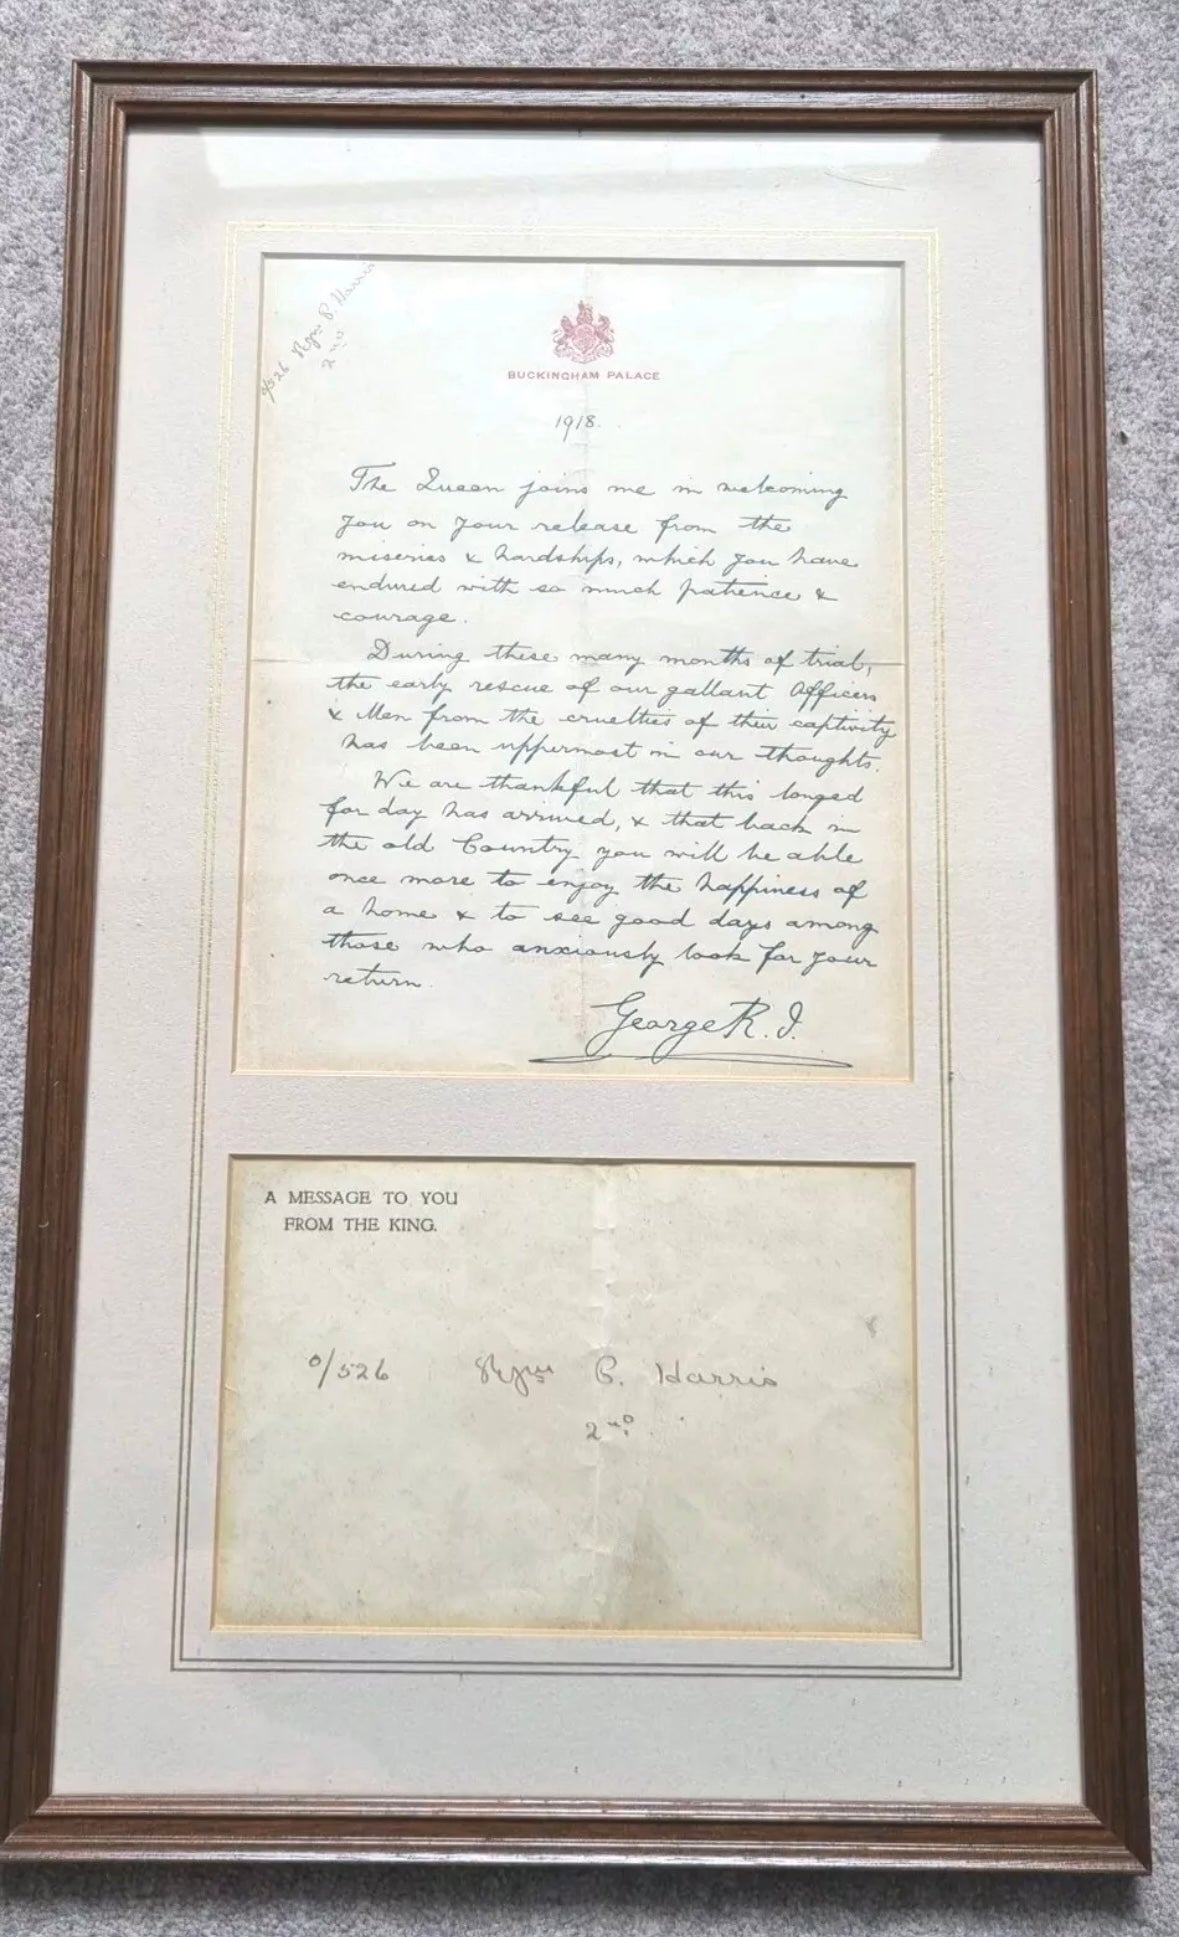 9/526 Rfm P. Harris
2nd
BUCKINGHAM PALACE
1918.
The Queen joins me in welcoming
you on your release from the
miseries & hardships, which you have
endured with so much patience &
courage.
During these many months of trial,
the early rescue of our gallant Officers
& Men from the cruelties of their captivity
has been uppermost in our thoughts.
We are thankful that this longed
for day has arrived, & that back in
the old Country you will be able
once more to enjoy the happiness of
a home & to see good days among
those who anxiously look for your
return.
George R.I.
A MESSAGE TO YOU
FROM THE KING.
/526 P. Harris
2nd